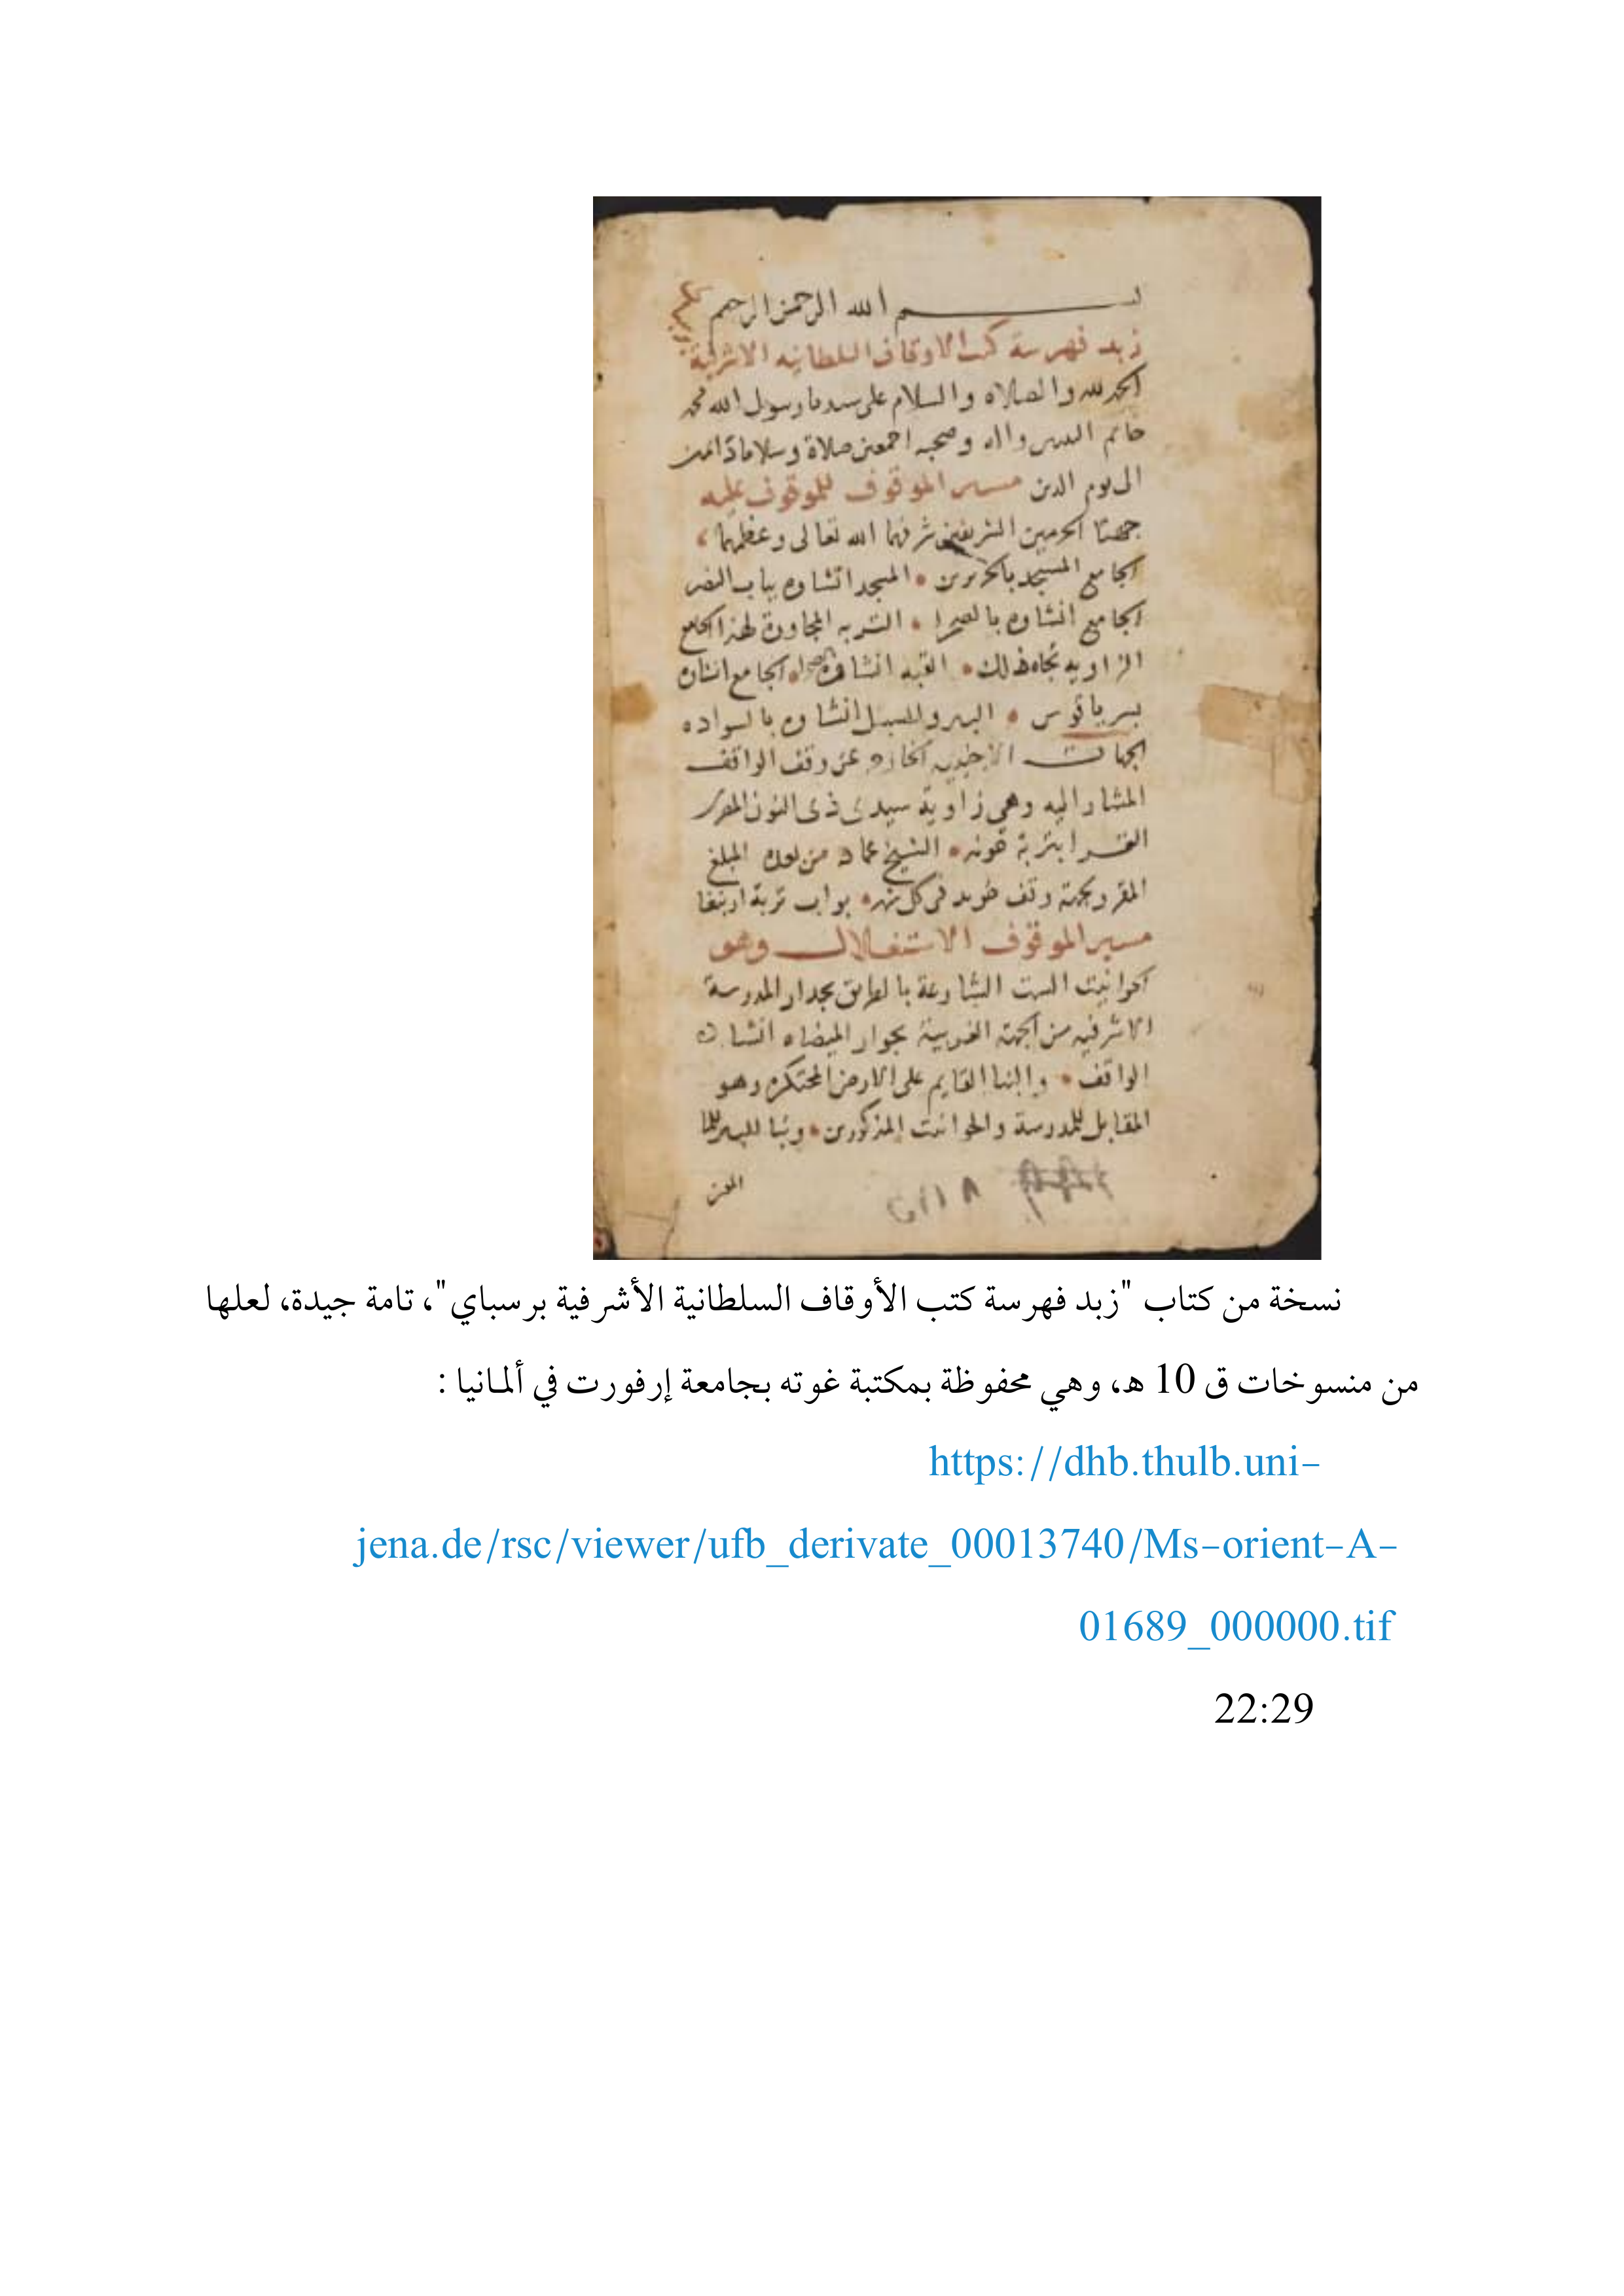 بسم الله الرحمن الرحيم
زبد فهرسة كتب الاوقاف السلطانيه الاشرفية
الحمد لله والصلاه والسلام على سيدنا رسول الله محمد
خاتم النبيين واله وصحبه اجمعين صلاة وسلاما دائمين
الى يوم الدين الموقوف للموقوف عليه
جهتا الحرمين الشريفين شرفهما الله تعالى وعظمهما
الجامع المسجد بالحريريين المسجد انشاوه بباب النصر
الجامع انشاوه بالصحرا التربه المجاورة لهذا الجامع
الزاويه تجاه ذلك القبه انشاوه الجامع انشاه
بسرياقوس البير والسبيل انشاوه بالسواده
الجهات عن وقف الواقف
المشار اليه وهي زاوية سيدى ذى النون المصرى
بتربة الشيخ عماد من المبلغ
المقرر بجهة وقف فى كل شهر بواب تربة
الموقوف الاستغلال وهو
حوانيت الست الشارعة بالطريق بجدار المدرسة
الاشرفيه من الجهة الغربية بجوار الميضاه انشاه
الواقف والبنا القايم على الارض المحتكره وهو
المقابل للمدرسة والحوانيت المذكورين وبنا
نسخة من كتاب "زبد فهرسة كتب الأوقاف السلطانية الأشرفية برسباي"، تامة جيدة، لعلها
من منسوخات ق 10 هـ، وهي محفوظة بمكتبة غوته بجامعة إرفورت في ألمانيا :
https://dhb.thulb.uni-
jena.de/rsc/viewer/ufb_derivate_00013740/Ms-orient-A-
01689_000000.tif
22:29